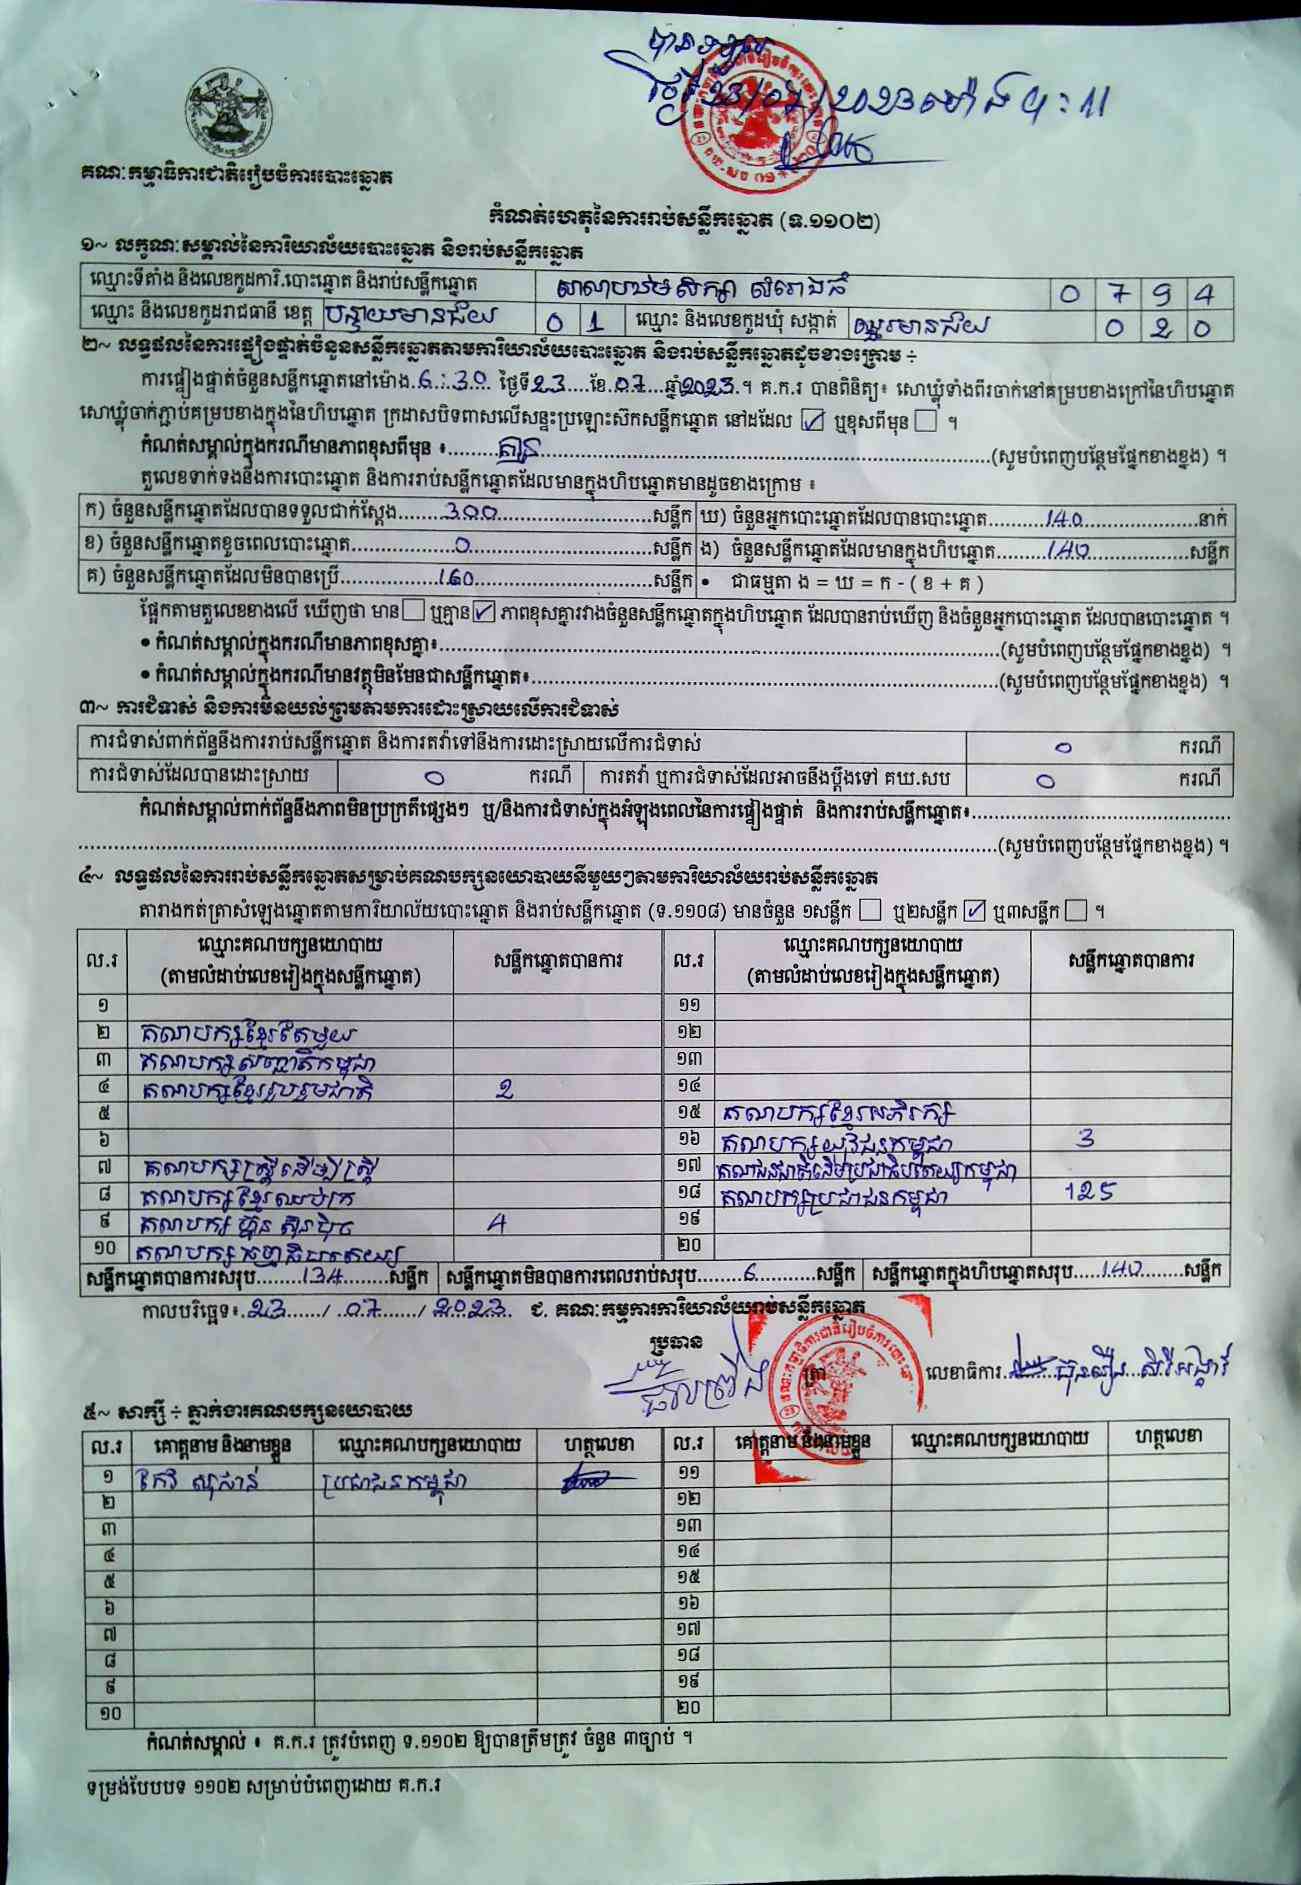 បានទទួល
ថ្ងៃទី 23/07/2023 ម៉ោង ៤:11
គណៈកម្មាធិការជាតិរៀបចំការបោះឆ្នោត
កំណត់ហេតុនៃការរាប់សន្លឹកឆ្នោត (ទ.១១០២)
១~ លក្ខណៈសម្គាល់នៃការិយាល័យបោះឆ្នោត និងរាប់សន្លឹកឆ្នោត
ឈ្មោះទីតាំង និងលេខកូដការិ.បោះឆ្នោត និងរាប់សន្លឹកឆ្នោត សាលាបឋមសិក្សា សំរោងធំ 0 7 9 4
ឈ្មោះ និងលេខកូដរាជធានី ខេត្ត បន្ទាយមានជ័យ 0 1 ឈ្មោះ និងលេខកូដឃុំ សង្កាត់ ឈ្នួរមានជ័យ 0 2 0
២~ លទ្ធផលនៃការផ្ទៀងផ្ទាត់ចំនួនសន្លឹកឆ្នោតតាមការិយាល័យបោះឆ្នោត និងរាប់សន្លឹកឆ្នោតដូចខាងក្រោម ÷
ការផ្ទៀងផ្ទាត់ចំនួនសន្លឹកឆ្នោតនៅម៉ោង 6:30 ថ្ងៃទី 23 ខែ 07 ឆ្នាំ 2023 ។ គ.ក.រ បានពិនិត្យ៖ សោឃ្លុំទាំងពីរចាក់នៅគម្របខាងក្រៅនៃហិបឆ្នោត
សោឃ្លុំចាក់ភ្ជាប់គម្របខាងក្នុងនៃហិបឆ្នោត ក្រដាសបិទពាសលើសន្ទះប្រឡោះស៊កសន្លឹកឆ្នោត នៅដដែល ☑ ឬខុសពីមុន ☐ ។
កំណត់សម្គាល់ក្នុងករណីមានភាពខុសពីមុន ៖ គ្មាន (សូមបំពេញបន្ថែមផ្នែកខាងខ្នង) ។
តួលេខទាក់ទងនឹងការបោះឆ្នោត និងការរាប់សន្លឹកឆ្នោតដែលមានក្នុងហិបឆ្នោតមានដូចខាងក្រោម ៖
ក) ចំនួនសន្លឹកឆ្នោតដែលបានទទួលជាក់ស្ដែង 300 សន្លឹក ឃ) ចំនួនអ្នកបោះឆ្នោតដែលបានបោះឆ្នោត 140 នាក់
ខ) ចំនួនសន្លឹកឆ្នោតខូចពេលបោះឆ្នោត 0 សន្លឹក ង) ចំនួនសន្លឹកឆ្នោតដែលមានក្នុងហិបឆ្នោត 140 សន្លឹក
គ) ចំនួនសន្លឹកឆ្នោតដែលមិនបានប្រើ 160 សន្លឹក • ជាធម្មតា ង = ឃ = ក - ( ខ + គ )
ផ្អែកតាមតួលេខខាងលើ ឃើញថា មាន ☐ ឬគ្មាន ☑ ភាពខុសគ្នារវាងចំនួនសន្លឹកឆ្នោតក្នុងហិបឆ្នោត ដែលបានរាប់ឃើញ និងចំនួនអ្នកបោះឆ្នោត ដែលបានបោះឆ្នោត ។
• កំណត់សម្គាល់ក្នុងករណីមានភាពខុសគ្នា៖ (សូមបំពេញបន្ថែមផ្នែកខាងខ្នង) ។
• កំណត់សម្គាល់ក្នុងករណីមានវត្ថុមិនមែនជាសន្លឹកឆ្នោត៖ (សូមបំពេញបន្ថែមផ្នែកខាងខ្នង) ។
៣~ ការជំទាស់ និងការមិនយល់ព្រមតាមការដោះស្រាយលើការជំទាស់
ការជំទាស់ពាក់ព័ន្ធនឹងការរាប់សន្លឹកឆ្នោត និងការតវ៉ាទៅនឹងការដោះស្រាយលើការជំទាស់ 0 ករណី
ការជំទាស់ដែលបានដោះស្រាយ 0 ករណី ការតវ៉ា ឬការជំទាស់ដែលអាចនឹងប្ដឹងទៅ គឃ.សប 0 ករណី
កំណត់សម្គាល់ពាក់ព័ន្ធនឹងភាពមិនប្រក្រតីផ្សេងៗ ឬ/និងការជំទាស់ក្នុងអំឡុងពេលនៃការផ្ទៀងផ្ទាត់ និងការរាប់សន្លឹកឆ្នោត៖
(សូមបំពេញបន្ថែមផ្នែកខាងខ្នង) ។
៤~ លទ្ធផលនៃការរាប់សន្លឹកឆ្នោតសម្រាប់គណបក្សនយោបាយនីមួយៗតាមការិយាល័យរាប់សន្លឹកឆ្នោត
តារាងកត់ត្រាសំឡេងឆ្នោតតាមការិយាល័យបោះឆ្នោត និងរាប់សន្លឹកឆ្នោត (ទ.១១០៨) មានចំនួន ១សន្លឹក ☐ ឬ២សន្លឹក ☑ ឬ៣សន្លឹក ☐ ។
ល.រ ឈ្មោះគណបក្សនយោបាយ (តាមលំដាប់លេខរៀងក្នុងសន្លឹកឆ្នោត) សន្លឹកឆ្នោតបានការ ល.រ ឈ្មោះគណបក្សនយោបាយ (តាមលំដាប់លេខរៀងក្នុងសន្លឹកឆ្នោត) សន្លឹកឆ្នោតបានការ
១ ១១
២ គណបក្សខ្មែរតែមួយ ១២
៣ គណបក្សសញ្ជាតិកម្ពុជា ១៣
៤ គណបក្សខ្មែររួបរួមជាតិ 2 ១៤
៥ ១៥ គណបក្សខ្មែរអភិរក្ស
៦ ១៦ គណបក្សយុវជនកម្ពុជា 3
៧ គណបក្សស្ត្រីដើម្បីស្ត្រី ១៧ គណជនជាតិដើមប្រជាធិបតេយ្យកម្ពុជា
៨ គណបក្សខ្មែរឈប់ក្រ ១៨ គណបក្សប្រជាជនកម្ពុជា 125
៩ គណបក្ស ហ៊្វុនស៊ិនប៉ិច 4 ១៩
១០ គណបក្ស ធម្មាធិបតេយ្យ ២០
សន្លឹកឆ្នោតបានការសរុប 134 សន្លឹក សន្លឹកឆ្នោតមិនបានការពេលរាប់សរុប 6 សន្លឹក សន្លឹកឆ្នោតក្នុងហិបឆ្នោតសរុប 140 សន្លឹក
កាលបរិច្ឆេទ៖ 23 / 07 / 2023 ជ. គណៈកម្មការការិយាល័យរាប់សន្លឹកឆ្នោត
ប្រធាន
ត្រា
លេខាធិការ
៥~ សាក្សី ÷ ភ្នាក់ងារគណបក្សនយោបាយ
ល.រ គោត្តនាម និងនាមខ្លួន ឈ្មោះគណបក្សនយោបាយ ហត្ថលេខា ល.រ គោត្តនាម និងនាមខ្លួន ឈ្មោះគណបក្សនយោបាយ ហត្ថលេខា
១ កែវ សុផាន់ ប្រជាជនកម្ពុជា ១១
២ ១២
៣ ១៣
៤ ១៤
៥ ១៥
៦ ១៦
៧ ១៧
៨ ១៨
៩ ១៩
១០ ២០
កំណត់សម្គាល់ ៖ គ.ក.រ ត្រូវបំពេញ ទ.១១០២ ឱ្យបានត្រឹមត្រូវ ចំនួន ៣ច្បាប់ ។
ទម្រង់បែបបទ ១១០២ សម្រាប់បំពេញដោយ គ.ក.រ